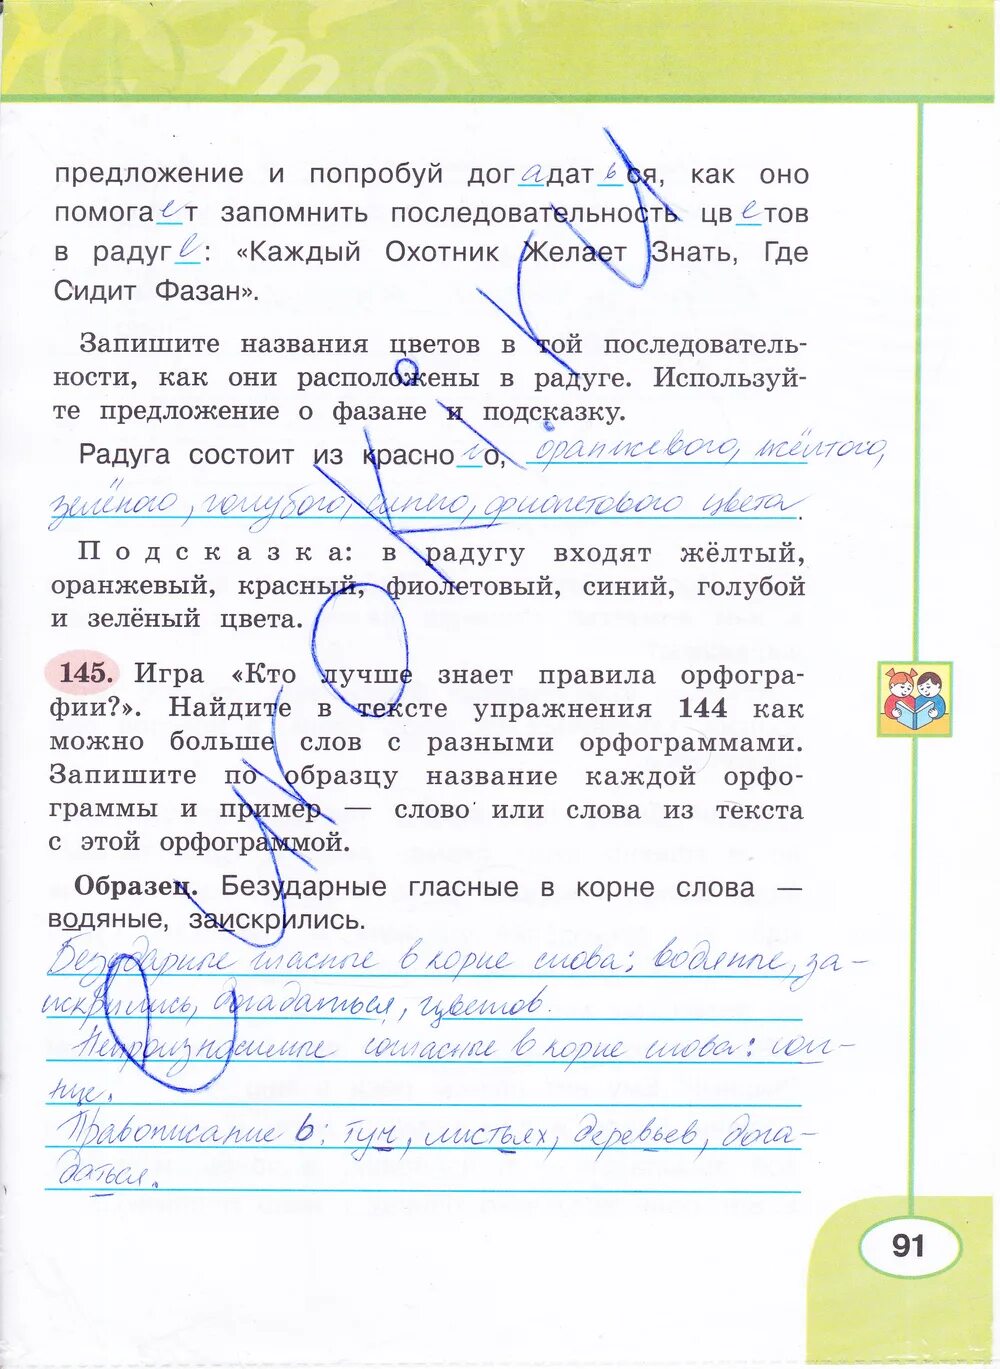 предложение и попробуй догадаться, как оно
помогает запомнить последовательность цветов
в радуге: «Каждый Охотник Желает Знать, Где
Сидит Фазан».
Запишите названия цветов в той последователь-
ности, как они расположены в радуге. Используй-
те предложение о фазане и подсказку.
Радуга состоит из красного, оранжевого, жёлтого,
зелёного, голубого, синего, фиолетового цвета.
Подсказка: в радугу входят жёлтый,
оранжевый, красный, фиолетовый, синий, голубой
и зелёный цвета.
145. Игра «Кто лучше знает правила орфогра-
фии?». Найдите в тексте упражнения 144 как
можно больше слов с разными орфограммами.
Запишите по образцу название каждой орфо-
граммы и пример — слово или слова из текста
с этой орфограммой.
Образец. Безударные гласные в корне слова —
водяные, заискрились.
Безударные гласные в корне слова: водяные, за-
искрились, догадаться, цветов.
Непроизносимые согласные в корне слова: солн-
це.
Правописание ь: туч, листьях, деревьев, дога-
даться.
91